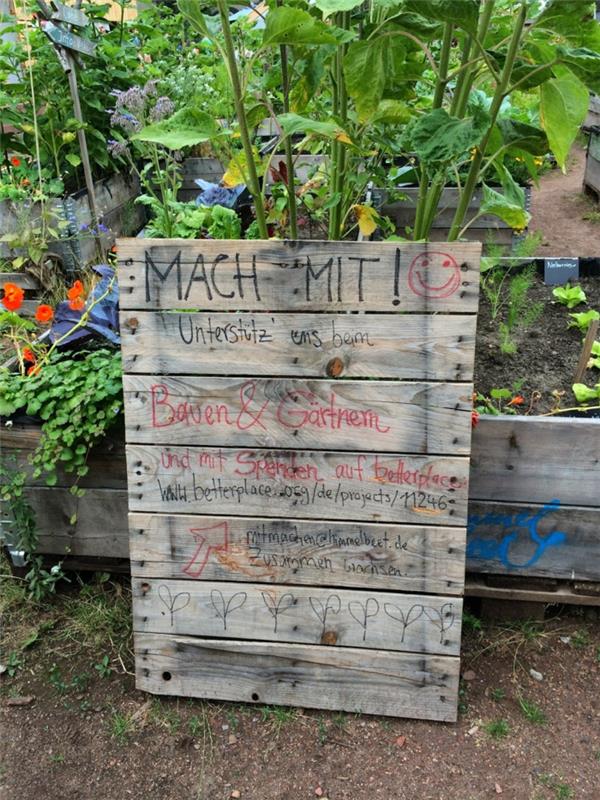 MACH MIT!
Unterstütz' uns beim
Bauen & Gärtnern
und mit Spenden auf betterplace:
www.betterplace.org/de/projects/11246
mitmachen@himmelbeet.de
Zusammen wachsen.